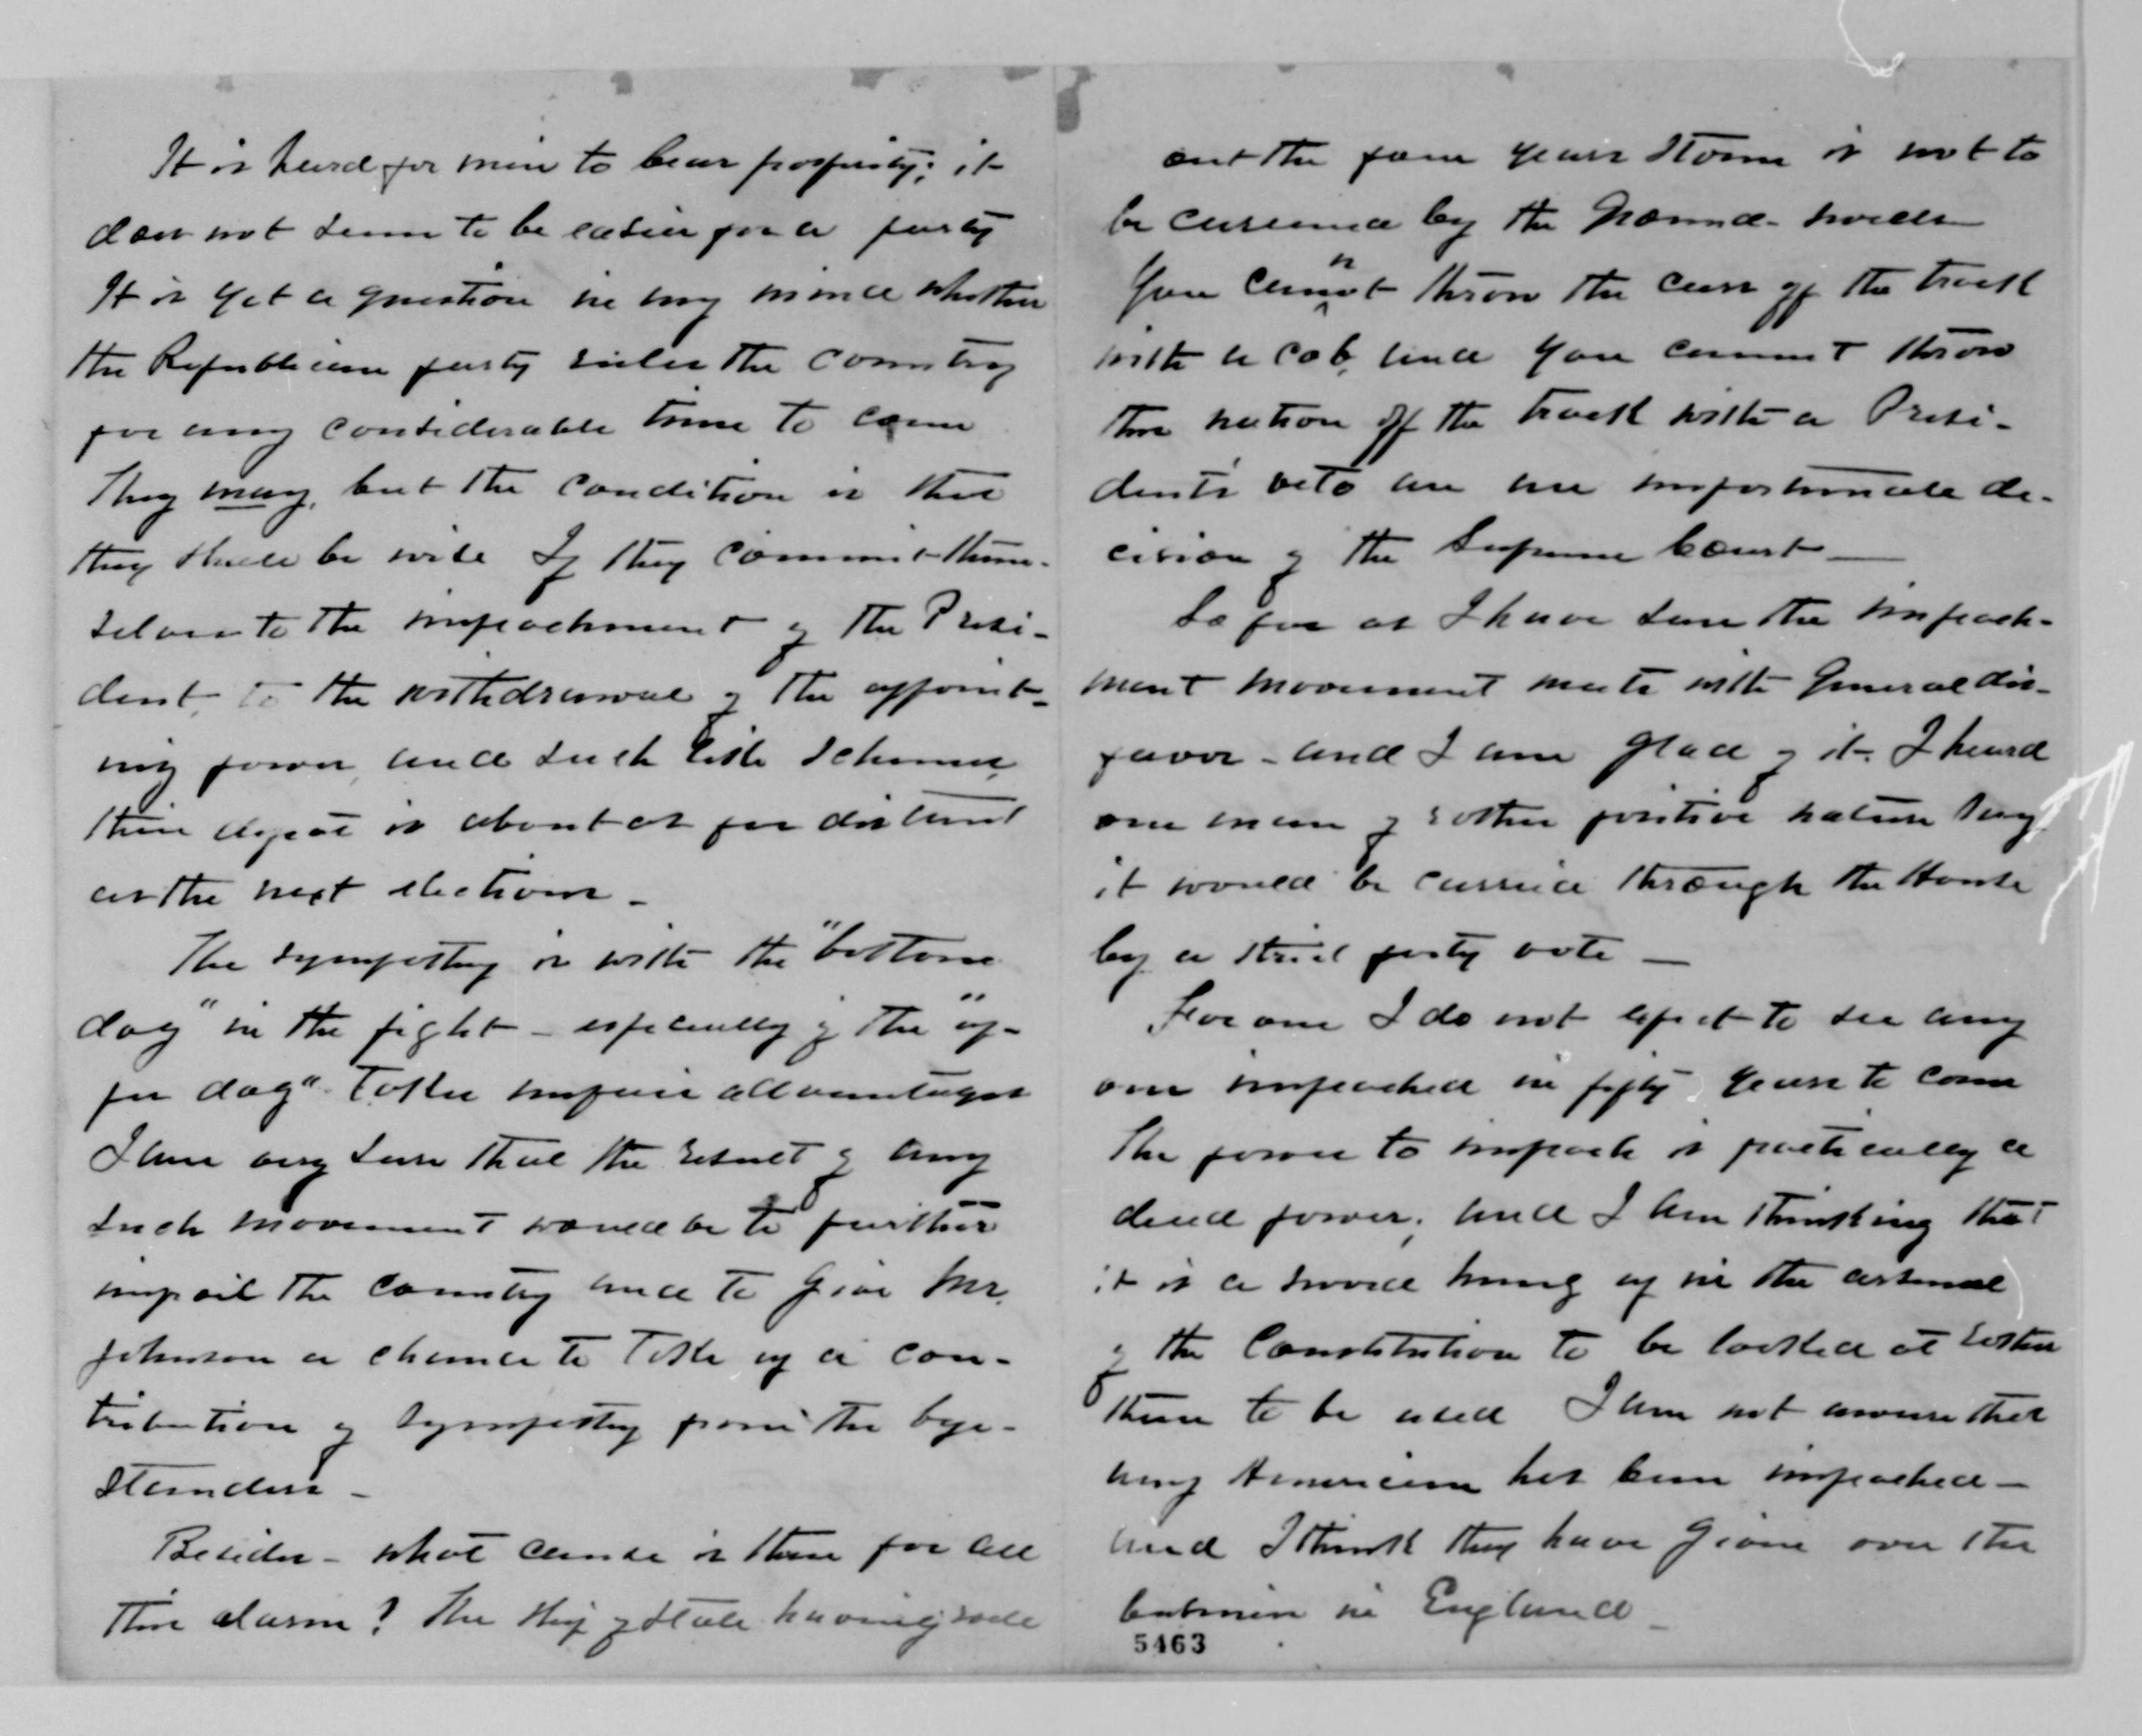 It is hard for men to bear prosperity; it
does not seem to be easier for a party
It is yet a question in my mind whether
the Republican party rules the country
for any considerable time to come
They may, but the condition is that
they shall be wise If they commit them-
selves to the impeachment of the Presi-
dent, to the withdrawal of the appoint-
ing power, and such like schemes,
their defeat is about as far distant
as the next election -
The sympathy is with the "bottom
dog" in the fight - especially if the "up-
per dog" takes unfair advantages
I am very sure that the result of any
such movement would be to further
imperil the country and to give Mr.
Johnson a chance to take up a con-
tribution of sympathy from the bye-
standers -
Besides - what cause is there for all
this alarm? The ship of state having rode
out the four years storm is not to
be careened by the ground-swells
You cannot throw the cars off the track
with a cob, and you cannot throw
this nation off the track with a Presi-
dent's veto or an unfortunate de-
cision of the Supreme Court -
So far as I have seen the impeach-
ment movement meets with general dis-
favor - and I am glad of it. I heard
one man of rather positive nature say
it would be carried through the House
by a strict party vote -
For one I do not expect to see any
one impeached in fifty years to come
The power to impeach is practically a
dead power; and I am thinking that
it is a sword hung up in the arsenal
of the Constitution to be looked at rather
than to be used I am not aware that
any American has been impeached -
and I think they have given over the
business in England -
5463